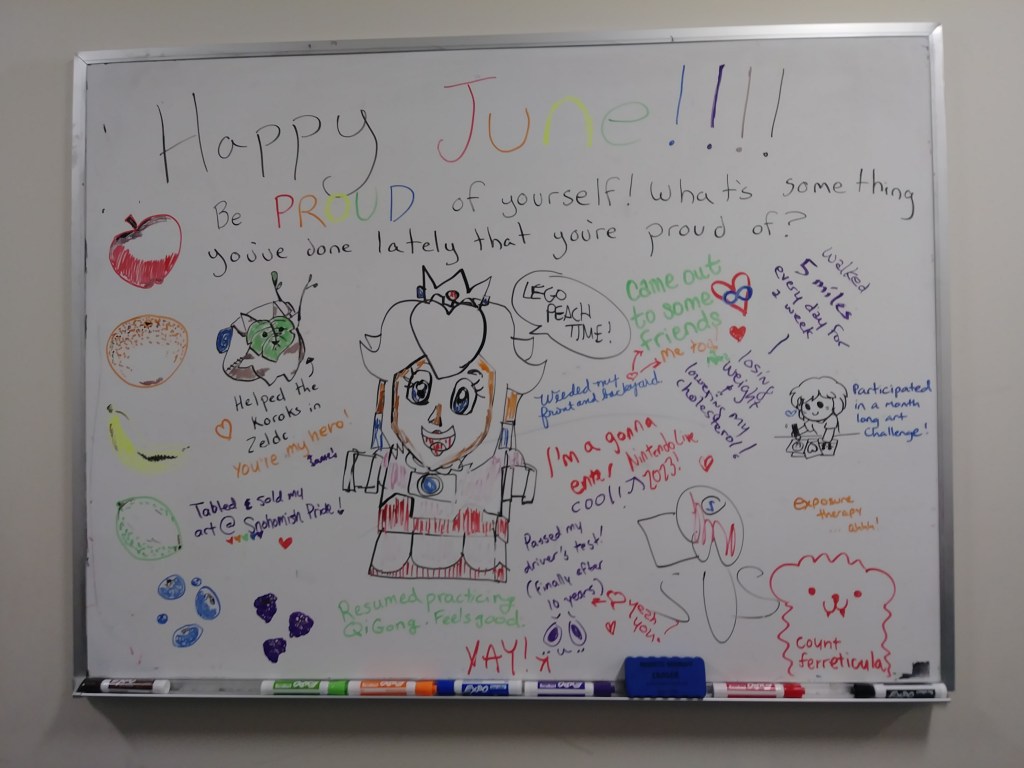 Happy June!!!!
Be PROUD of yourself! What's something
you've done lately that you're proud of?
LEGO
PEACH
TIME!
Came out
to some
friends
me too!
walked
5 miles
every day for
1 week!
losing
weight
lowering my
cholesterol!
Weeded my
front and backyard
Helped the
Koroks in
Zelda
You're my hero!
Participated
in a month
long art
challenge!
I'm a gonna
enter Nintendo Live
2023!
cool!
Tabled & sold my
art @ Snohomish Pride!
exposure
therapy
... ahhh!
Passed my
driver's test!
(finally after
10 years)
yeah
you!
Resumed practicing
QiGong. Feels good.
YAY!
Count
ferreticula
EXPO
EXPO
EXPO
EXPO